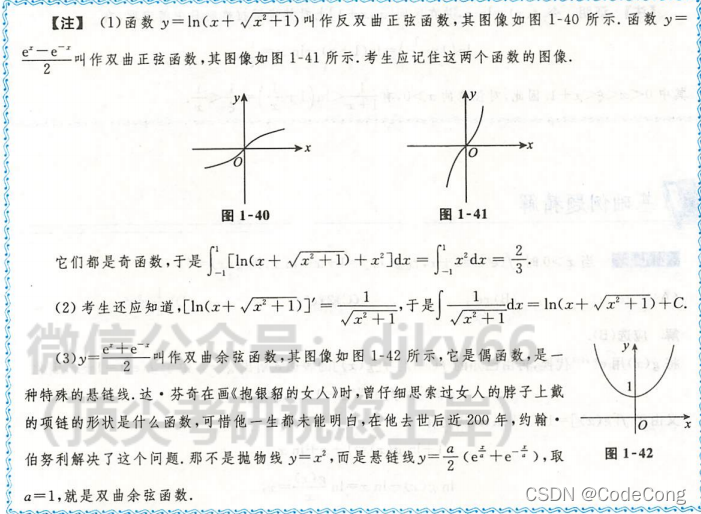 【注】 (1)函数 y=ln(x+√(x²+1))叫作反双曲正弦函数,其图像如图 1-40 所示.函数 y=
(eˣ-e⁻ˣ)/2 叫作双曲正弦函数,其图像如图 1-41 所示.考生应记住这两个函数的图像.
y
x
O
图 1-40
y
x
O
图 1-41
它们都是奇函数,于是∫₋₁¹[ln(x+√(x²+1))+x²]dx=∫₋₁¹x²dx=2/3.
(2) 考生还应知道,[ln(x+√(x²+1))]′=1/√(x²+1),于是∫1/√(x²+1)dx=ln(x+√(x²+1))+C.
(3)y=(eˣ+e⁻ˣ)/2叫作双曲余弦函数,其图像如图 1-42 所示,它是偶函数,是一
种特殊的悬链线.达·芬奇在画《抱银貂的女人》时,曾仔细思索过女人的脖子上戴
的项链的形状是什么函数,可惜他一生都未能明白,在他去世后近 200 年,约翰·
伯努利解决了这个问题.那不是抛物线 y=x²,而是悬链线y=a/2(e^(x/a)+e^(-x/a)),取
a=1,就是双曲余弦函数.
y
1
O
x
图 1-42
微信公众号:djky66
(顶尖考研祝您上岸)
CSDN @CodeCong